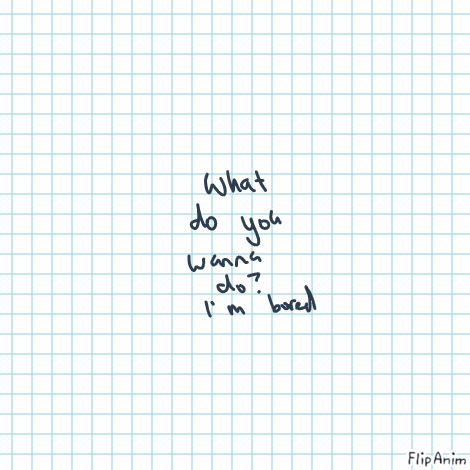 What
do you
wanna
do?
I'm bored
FlipAnim